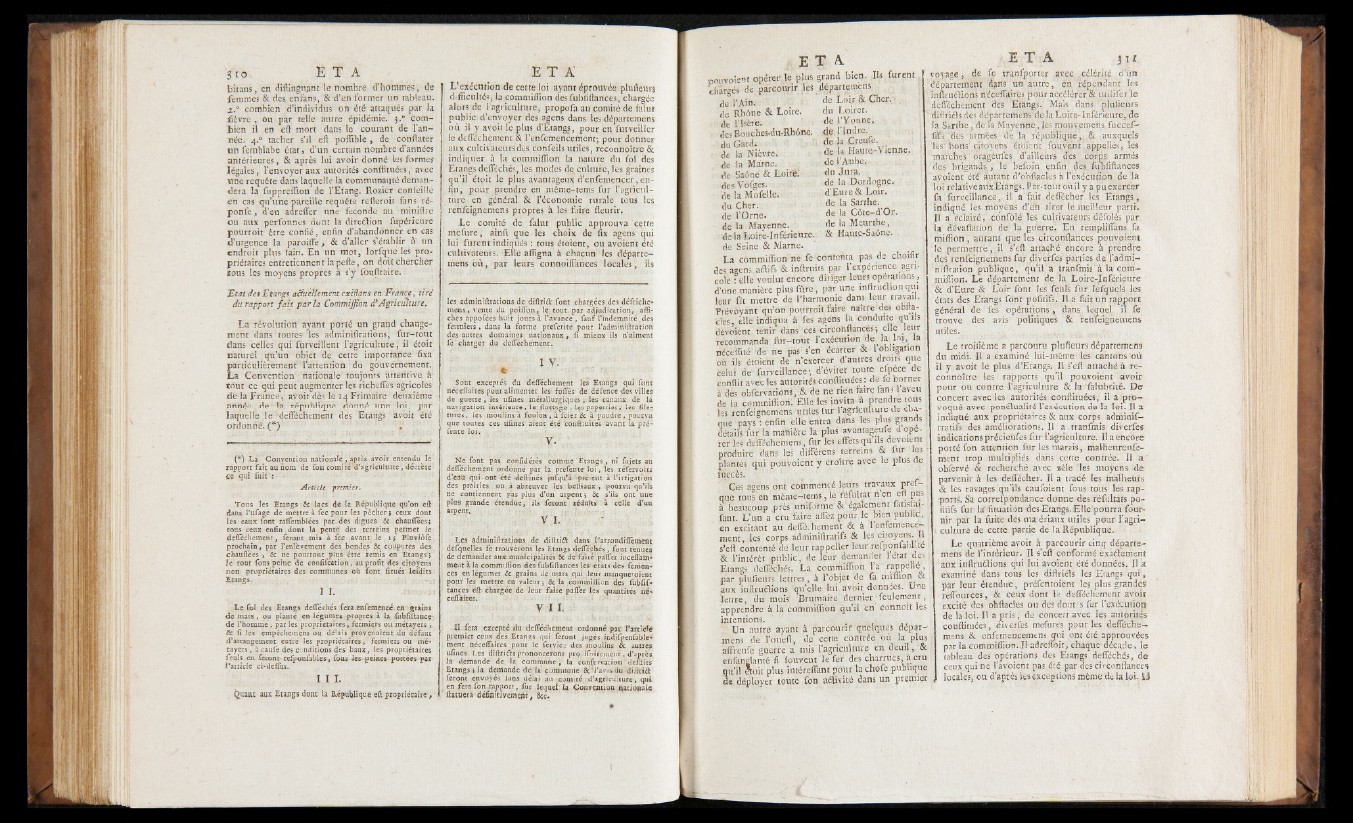 310
E T A
bitans, en diſtinguant le nombre d'hommes, de
femmes & des enfans, & d'en former un tableau.
2.º combien d'individus on été attaqués par la
fièvre, ou par telle autre épidémie. 3.º com-
bien il en eſt mort dans le courant de l'an-
née. 4.º tacher s'il eſt poſſible, de conſtater
un ſemblabe état, d'un certain nombre d'années
antérieures, & après lui avoir donné les formes
légales, l'envoyer aux autorités conſtituées, avec
une requête dans laquelle la communauté deman-
dera la ſuppreſſion de l'Etang. Rozier conſeille
en cas qu'une pareille requête reſteroit ſans ré-
ponſe, d'en adreſſer une ſeconde au miniſtre
ou aux perſonnes dont la direction ſupérieure
pourroit être confié, enfin d'abandonner en cas
d'urgence la paroiſſe, & d'aller s'établir à un
endroit plus ſain. En un mot, lorſque les pro-
priétaires entretiennent la peſte, on doit chercher
tous les moyens propres à s'y ſouſtraire.
Etat des Etangs actuellement exiſtans en France, tiré
du rapport fait par la Commiſſion d'Agriculture.
La révolution ayant porté un grand change-
ment dans toutes les adminiſtrations, ſur-tout
dans celles qui ſurveillent l'agriculture, il étoit
naturel qu'un objet de cette importance fixa
particulièrement l'attention du gouvernement.
La Convention nationale toujours attentive à
tout ce qui peut augmenter les richeſſes agricoles
de la France, avoit dès le 14 Frimaire deuxième
année de la république donné une loi, par
laquelle le deſſèchement des Etangs avoit été
ordonné. (*)
(*) La Convention nationale, après avoir entendu le
rapport fait au nom de ſon comité d'agriculture, décrète
ce qui ſuit :
Article premier.
Tous les Etangs & lacs de la République qu'on eſt
dans l'uſage de mettre à ſec pour les pêcher; ceux dont
les eaux ſont raſſemblées par des digues & chauſſées;
tous ceux enfin dont la pente des terreins permet le
deſſéchement, ſeront mis à ſec avant le 15 Pluviôſe
prochain, par l'enlèvement des bondes & coupures des
chauſſées, & ne pourront plus être remis en Etangs;
le tout ſous peine de confiſcation, au profit des citoyens
non propriétaires des communes où ſont ſitués leſdits
Etangs.
I I.
Le ſol des Etangs deſſéchés ſera enſemencé en grains
de mars, ou planté en légumes propres à la ſubſiſtance
de l'homme, par les propriétaires, fermiers ou métayers,
& ſi les empêchemens ou délais provenoient du défaut
d'arrangement entre les propriétaires, fermiers ou mé-
tayers, à cauſe des conditions des baux, les propriétaires
ſeuls en ſeront reſponſables, ſous les peines portées par
l'article ci-deſſus.
I I I.
Quant aux Etangs dont la République eſt propriétaire,
E T A
L'exécution de cette loi ayant éprouvée pluſieurs
difficultés, la commiſſion des ſubſiſtances, chargée
alors de l'agriculture, propoſa au comité de ſalut
public d'envoyer des agens dans les départemens
où il y avoit le plus d'Etangs, pour en ſurveiller
le deſſéchement & l'enſemencement; pour donner
aux cultivateurs des conſeils utiles, reconnoître &
indiquer à la commiſſion la nature du ſol des
Etangs deſſéchés, les modes de culture, les graines
qu'il étoit le plus avantageux d'enſemencer, en-
fin, pour prendre en même-tems ſur l'agricul-
ture en général & l'économie rurale tous les
renſeignemens propres à les faire fleurir.
Le comité de ſalut public approuva cette
meſure, ainſi que les choix de ſix agens qui
lui furent indiqués : tous étoient, ou avoient été
cultivateurs. Elle aſſigna à chacun les départe-
mens où, par leurs connoiſſances locales, ils
les adminiſtrations de diſtrict ſont chargées des deſſèche-
mens, vente du poiſſon, le tout par adjudication, affi-
ches appoſées huit jours à l'avance, ſauf l'indemnité des
fermiers, dans la forme preſcrite pour l'adminiſtration
des autres domaines nationaux, ſi mieux ils n'aiment
ſe charger du deſſèchement.
I V.
Sont exceptés du deſſèchement les Etangs qui ſont
néceſſaires pour alimenter les foſſés de défence des villes
de guerre, les uſines métallurgiques, les canaux de la
navigation intérieure, le flottage, les papeteries, les fila-
tures, les moulins à foulon, à ſcier & à poudre, pourvu
que toutes ces uſines aient été conſtruites avant la pré-
ſente loi.
V.
Ne ſont pas conſidérés comme Etangs, ni ſujets au
deſſéchement ordonné par la préſente loi, les réſervoirs
d'eau qui ont été deſtinés juſqu'à préſent à l'irrigation
des prairies ou à abreuver les beſtiaux, pourvu qu'ils
ne contiennent pas plus d'un arpent; & s'ils ont une
plus grande étendue, ils ſeront réduits à celle d'un
arpent.
V I.
Les adminiſtrations de diſtrict dans l'arrondiſſement
deſquelles ſe trouveront les Etangs deſſéchés, ſont tenues
de demander aux municipalités & de faire paſſer inceſſam-
ment à la commiſſion des ſubſiſtances les états des ſemen-
ces en légumes & grains de mars qui leur manqueroient
pour les mettre en valeur; & la commiſſion des ſubſiſ-
tances eſt chargée de leur faire paſſer les quantités né-
ceſſaires.
V I I.
Il ſera excepté du deſſéchement ordonné par l'article
premier ceux des Etangs qui ſeront jugés indiſpenſable-
ment néceſſaires pour le ſervice des moulins & autres
uſines. Les diſtricts prononceront proviſoirement, d'après
la demande de la commune, la conſervation deſdits
Etangs; la demande de la commune & l'avis du diſtrict
ſeront envoyés ſans délai au comité d'agriculture, qui
en fera ſon rapport, ſur lequel la Convention nationale
ſtatuera définitivement, &c.
E T A
pouvoient opérer le plus grand bien. Ils furent
chargés de parcourir les départemens
de l'Ain.
de Rhône & Loire.
de l'Isère.
des Bouches-du-Rhône.
du Gard.
de la Nièvre.
de la Marne.
de Saône & Loire.
des Voſges.
de la Moſelle.
du Cher.
de l'Orne.
de la Mayenne.
de la Loire-Inférieure.
de Seine & Marne.
de Loir & Cher.
du Loiret.
de l'Yonne.
de l'Indre.
de la Creuſe.
de la Haute-Vienne.
de l'Aube.
du Jura.
de la Dordogne.
d'Eure & Loir.
de la Sarthe.
de la Côte-d'Or.
de la Meurthe,
& Haute-Saône.
La commiſſion ne ſe contenta pas de choiſir
des agens actifs & inſtruits par l'expérience agri-
cole : elle voulut encore diriger leurs opérations,
d'une manière plus ſûre, par une inſtruction qui
leur fit mettre de l'harmonie dans leur travail.
Prévoyant qu'on pourroit faire naître des obſta-
cles, elle indiqua à ſes agens la conduite qu'ils
devoient tenir dans ces circonſtances; elle leur
recommanda ſur-tout l'exécution de la loi, la
néceſſité de ne pas s'en écarter & l'obligation
où ils étoient de n'exercer d'autres droits que
celui de ſurveillance; d'éviter toute eſpèce de
conflit avec les autorités conſtituées : de ſe borner
à des obſervations, & de ne rien faire ſans l'aveu
de la commiſſion. Elle les invita à prendre tous
les renſeignemens utiles ſur l'agriculture de cha-
que pays : enfin elle entra dans les plus grands
détails ſur la manière la plus avantageuſe d'opé-
rer les deſſéchemens, ſur les effets qu'ils devoient
produire dans les différens terreins & ſur les
plantes qui pouvoient y croître avec le plus de
ſuccès.
Ces agens ont commencé leurs travaux preſ-
que tous en même-tems, le réſultat n'en eſt pas
à beaucoup près uniforme & également ſatisfai-
ſant. L'un a cru faire aſſez pour le bien public,
en excitant au deſſèchement & à l'enſemence-
ment, les corps adminiſtratifs & les citoyens. Il
s'eſt contenté de leur rappeller leur reſponſabilité
& l'intérêt public, de leur demander l'état des
Etangs deſſéchés. La commiſſion l'a rappellé,
par pluſieurs lettres, à l'objet de ſa miſſion &
aux inſtructions qu'elle lui avoit données. Une
lettre, du mois Brumaire dernier ſeulement,
apprendre à la commiſſion qu'il en connoît les
intentions.
Un autre ayant à parcourir quelques dépar-
temens de l'oueſt, de cette contrée où la plus
affreuſe guerre a mis l'agriculture en deuil, &
enſanglanté ſi ſouvent le fer des charrues, a cru
qu'il étoit plus intéreſſant pour la choſe publique
de déployer toute ſon activité dans un premier
E T A
311
voyage, de ſe tranſporter avec célérité d'un
département dans un autre, en répendant les
inſtructions néceſſaires pour accélérer & utiliſer le
deſſèchement des Etangs. Mais dans pluſieurs
diſtricts des départemens de la Loire-Inférieure, de
la Sarthe, de la Mayenne, les mouvemens ſucceſ-
ſifs des armées de la république, & auxquels
les bons citoyens étoient ſouvent appelles, les
marches orageuſes d'ailleurs des corps armés
des brigands, le beſoin enfin des ſubſiſtances
avoient été autant d'obſtacles à l'exécution de la
loi relative aux Etangs. Par-tout où il y a pu exercer
ſa ſurveillance, il a fait deſſécher les Etangs,
indiqué les moyens d'en tirer le meilleur parti.
Il a éclairé, conſolé les cultivateurs déſolés par
la dévaſtation de la guerre. En rempliſſans ſa
miſſion, autant que les circonſtances pouvoient
le permettre, il s'eſt attaché encore à prendre
des renſeignemens ſur diverſes parties de l'admi-
niſtration publique, qu'il a tranſmis à la com-
miſſion. Le département de la Loire-Inférieure
& d'Eure & Loir ſont les ſeuls ſur leſquels les
états des Etangs ſont poſitifs. Il a fait un rapport
général de ſes opérations, dans lequel il ſe
trouve des avis politiques & renſeignemens
utiles.
Le troiſième a parcouru pluſieurs départemens
du midi. Il a examiné lui-même les cantons où
il y avoit le plus d'Etangs. Il s'eſt attaché à re-
connoître les rapports qu'il pouvoient avoir
pour ou contre l'agriculture & la ſalubrité. De
concert avec les autorités conſtituées, il a pro-
voqué avec ponctualité l'exécution de la loi. Il a
indiqué aux propriétaires & aux corps adminiſ-
tratifs des améliorations. Il a tranſmis diverſes
indications précieuſes ſur l'agriculture. Il a encore
porté ſon attention ſur les marais, malheureuſe-
ment trop multipliés dans cette contrée. Il a
obſervé & recherché avec zèle les moyens de
parvenir à les deſſécher. Il a tracé les malheurs
& les ravages qu'ils cauſoient ſous tous les rap-
ports. Sa correſpondance donne des réſultats po-
ſitifs ſur la ſituation des Etangs. Elle pourra four-
nir par la ſuite des matériaux utiles pour l'agri-
culture de cette partie de la République.
Le quatrième avoit à parcourir cinq départe-
mens de l'intérieur. Il s'eſt conformé exactement
aux inſtructions qui lui avoient été données. Il a
examiné dans tous les diſtricts les Etangs qui,
par leur étendue, préſentoient les plus grandes
reſſources, & ceux dont le deſſéchement avoit
excité des obſtacles ou des doutes ſur l'exécution
de la loi. Il a pris, de concert avec les autorités
conſtituées, diverſes meſures pour les deſſéche-
mens & enſemencemens qui ont été approuvées
par la commiſſion. Il adreſſoit, chaque décade, le
tableau des opérations des Etangs deſſéchés, de
ceux qui ne l'avoient pas été par des circonſtances
locales, ou d'après les exceptions même de la loi.